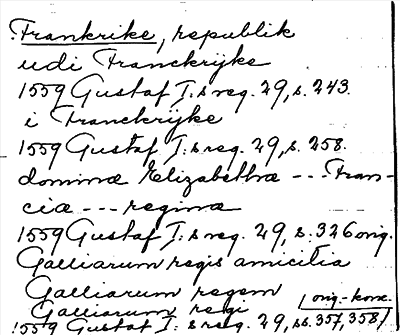 Frankrike, republik
udi Franckrijke
1559 Gustaf I:s reg. 29, s. 243.
i Franckrijke
1559 Gustaf I:s reg. 29, s. 258.
dominæ Elizabethæ --- Fran-
ciæ --- reginæ
1559 Gustaf I:s reg. 29, s. 326 orig.
Galliarum regis amicitia
Galliarum regem
Galliarum regi
orig.-konc.
1559 Gustaf I:s reg. 29, ss. 357, 358/